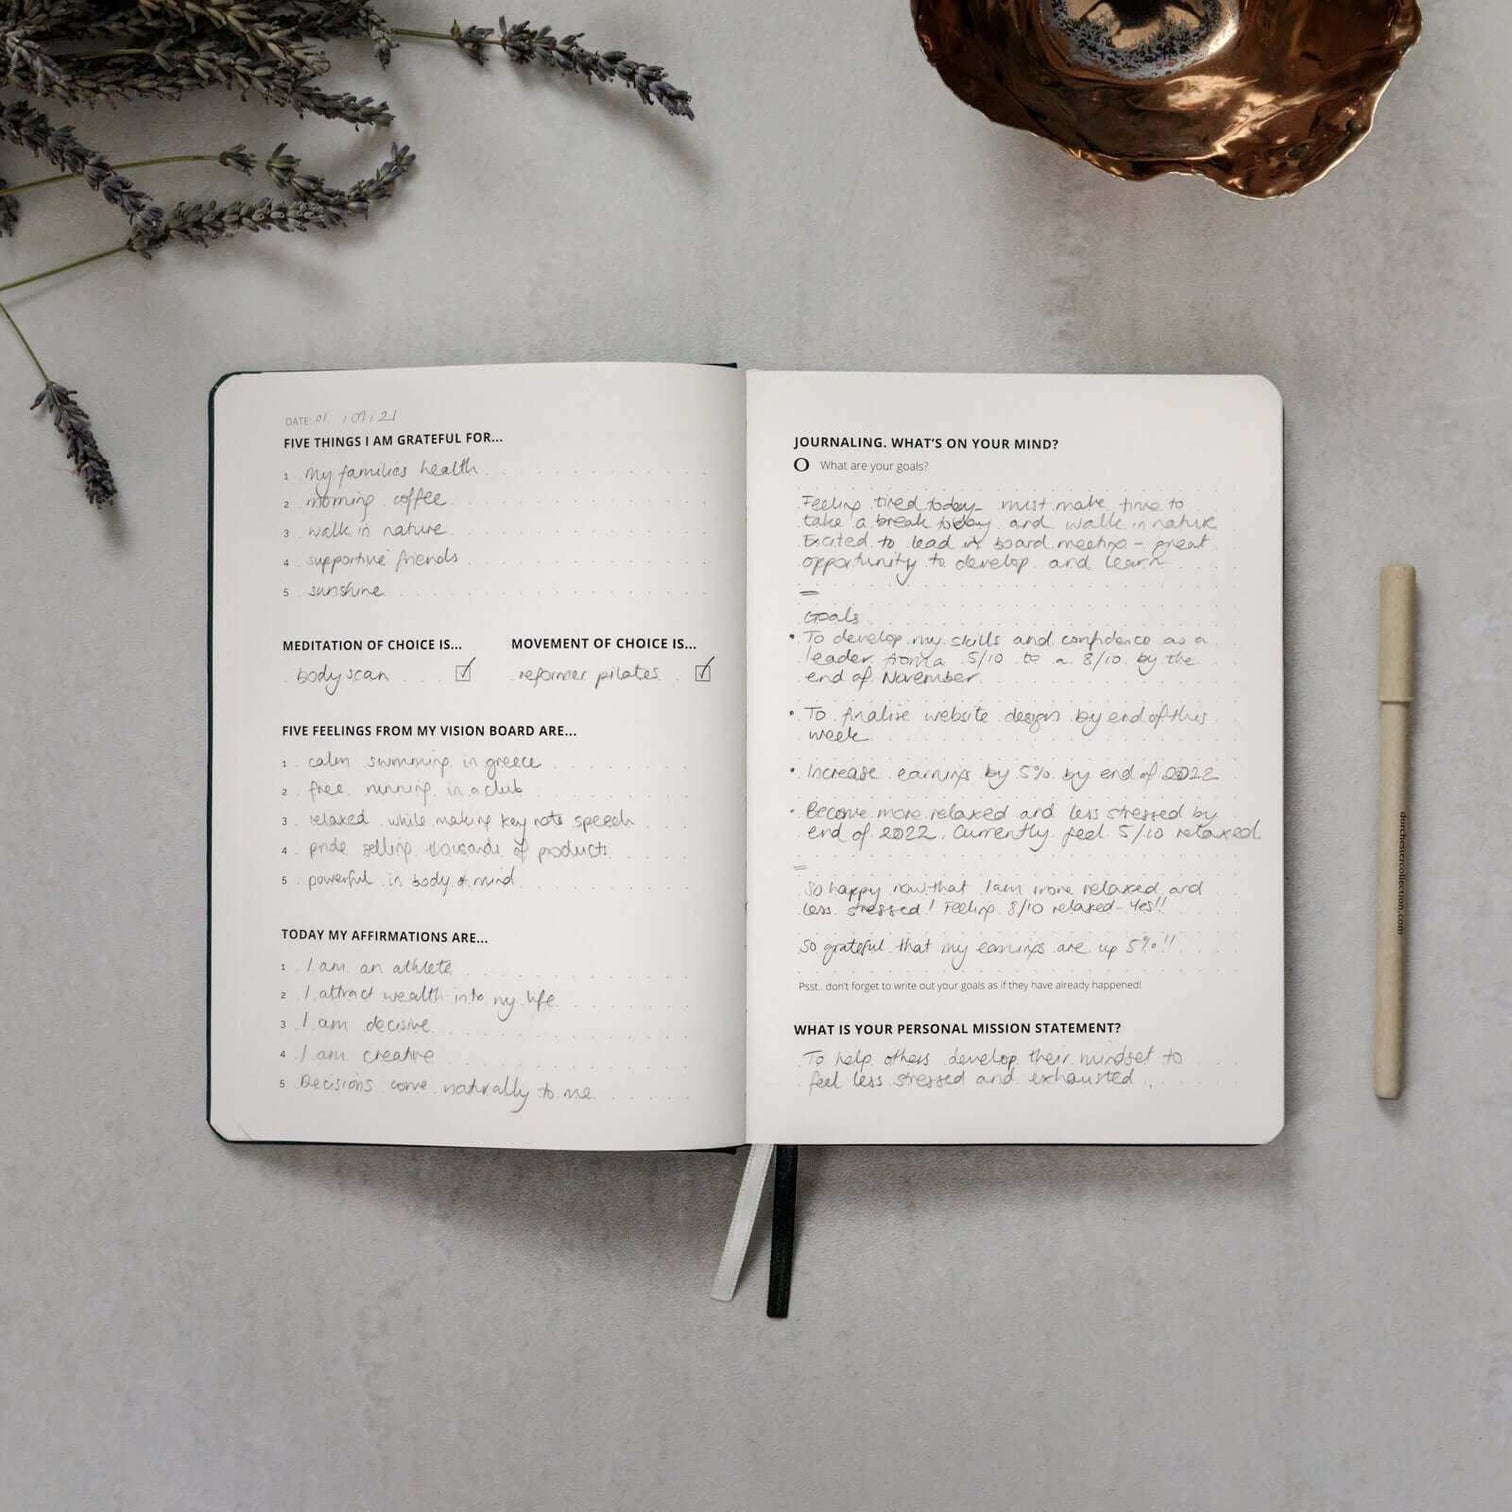 DATE: 01 / 07 / 21
FIVE THINGS I AM GRATEFUL FOR...
1 My families health
2 morning coffee
3 walk in nature
4 supportive friends
5 sunshine
MEDITATION OF CHOICE IS...
body scan
MOVEMENT OF CHOICE IS...
reformer pilates
FIVE FEELINGS FROM MY VISION BOARD ARE...
1 calm swimming in greece
2 free running in a club
3 relaxed while making key note speech
4 pride selling thousands of products
5 powerful in body & mind
TODAY MY AFFIRMATIONS ARE...
1 I am an athlete
2 I attract wealth into my life
3 I am decisive
4 I am creative
5 Decisions come naturally to me
JOURNALING. WHAT'S ON YOUR MIND?
O What are your goals?
Feeling tired today - must make time to
take a break today and walk in nature
Excited to lead in board meeting - great
opportunity to develop and learn
=
Goals
• To develop my skills and confidence as a
leader from a 5/10 to a 8/10 by the
end of November
• To finalise website designs by end of this
week
• Increase earnings by 5% by end of 2022
• Become more relaxed and less stressed by
end of 2022. Currently feel 5/10 relaxed
=
So happy now that I am more relaxed and
less stressed! Feeling 8/10 relaxed - Yes!!
So grateful that my earnings are up 5%!!
Psst.. don't forget to write out your goals as if they have already happened!
WHAT IS YOUR PERSONAL MISSION STATEMENT?
To help others develop their mindset to
feel less stressed and exhausted
dorchestercollection.com